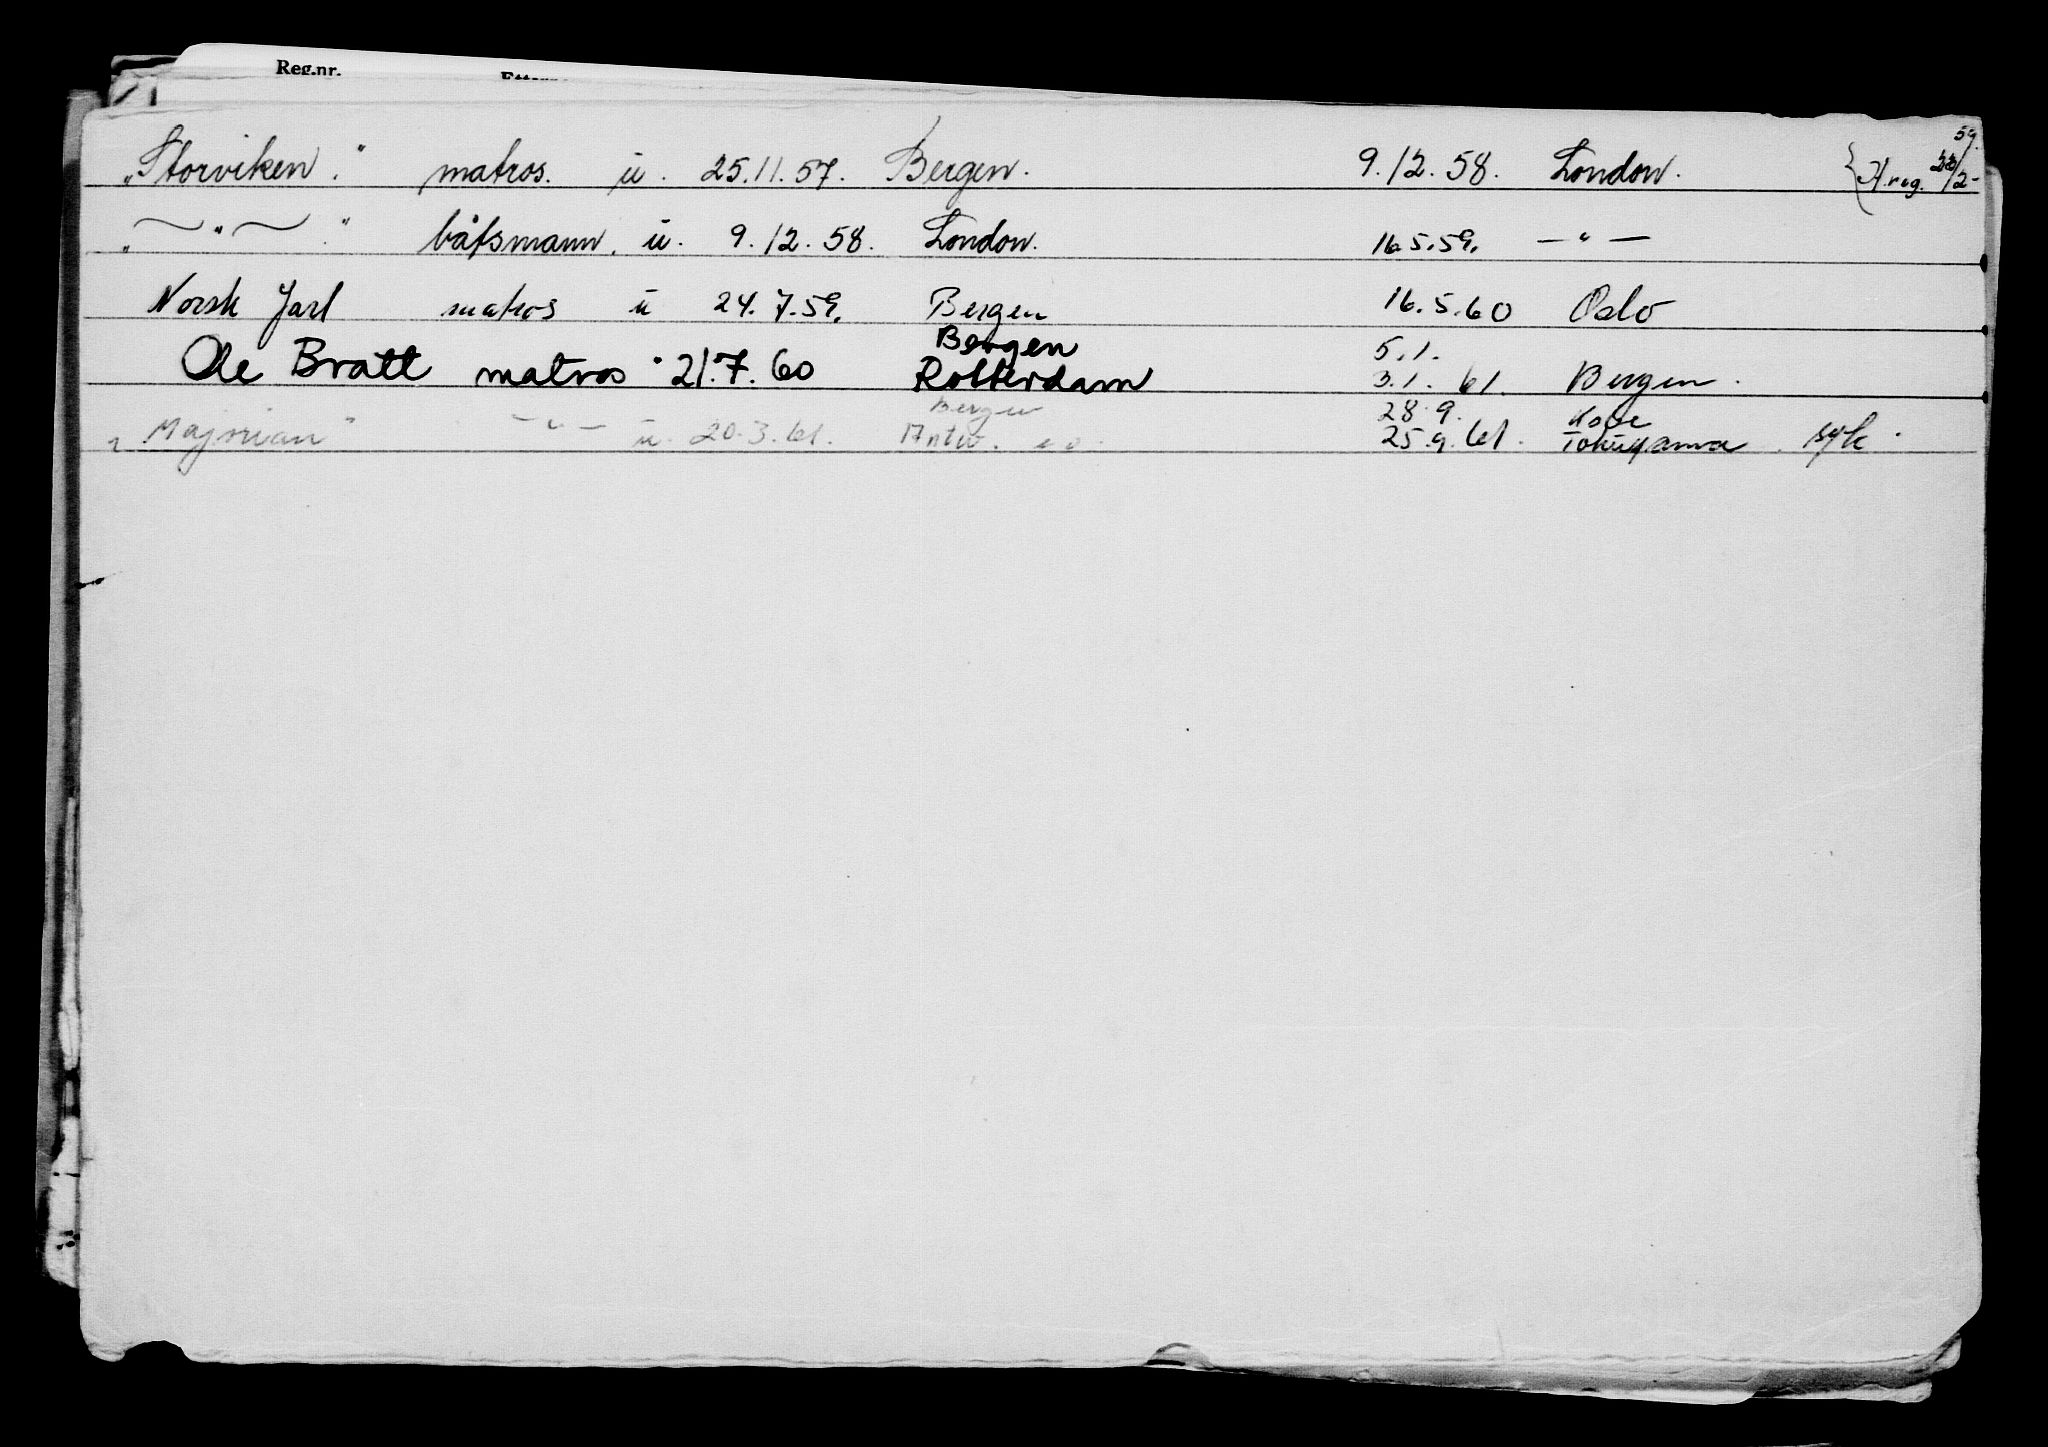 Reg.nr.
„Storviken." matros. u. 25.11.57. Bergen. 9.12.58. London. {H.reg. 59.
„ — " — " båtsmann. u. 9.12.58. London. 16.5.59. — " —
Norsk Jarl matros u 24.7.59. Bergen 16.5.60 Oslo
Bergen 5.1.
Ole Bratt matros " 21.7.60 Rotterdam 3.1.61. Bergen.
Bergen 28.9. Kobe
„Majorian" — " — u. 20.3.61. Antw. 25.9.61. Tokuyama. syk.